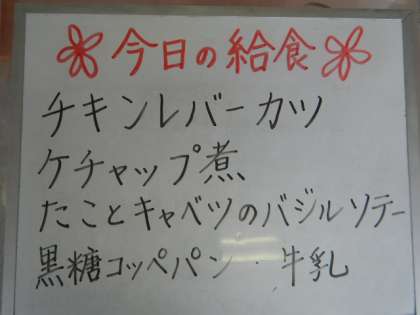 今日の給食
チキンレバーカツ
ケチャップ煮
たことキャベツのバジルソテー
黒糖コッペパン・牛乳